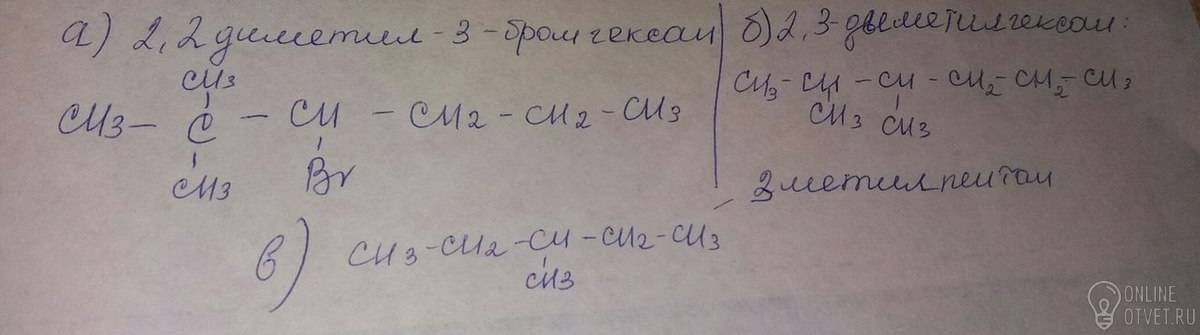 а) 2,2 диметил-3-бромгексан
CH3
CH3 - C - CH - CH2 - CH2 - CH3
CH3 Br
б) 2,3-диметилгексан:
CH3 - CH - CH - CH2 - CH2 - CH3
CH3 CH3
3 метилпентан
в) CH3-CH2-CH-CH2-CH3
CH3
ONLINE
OTVET.RU